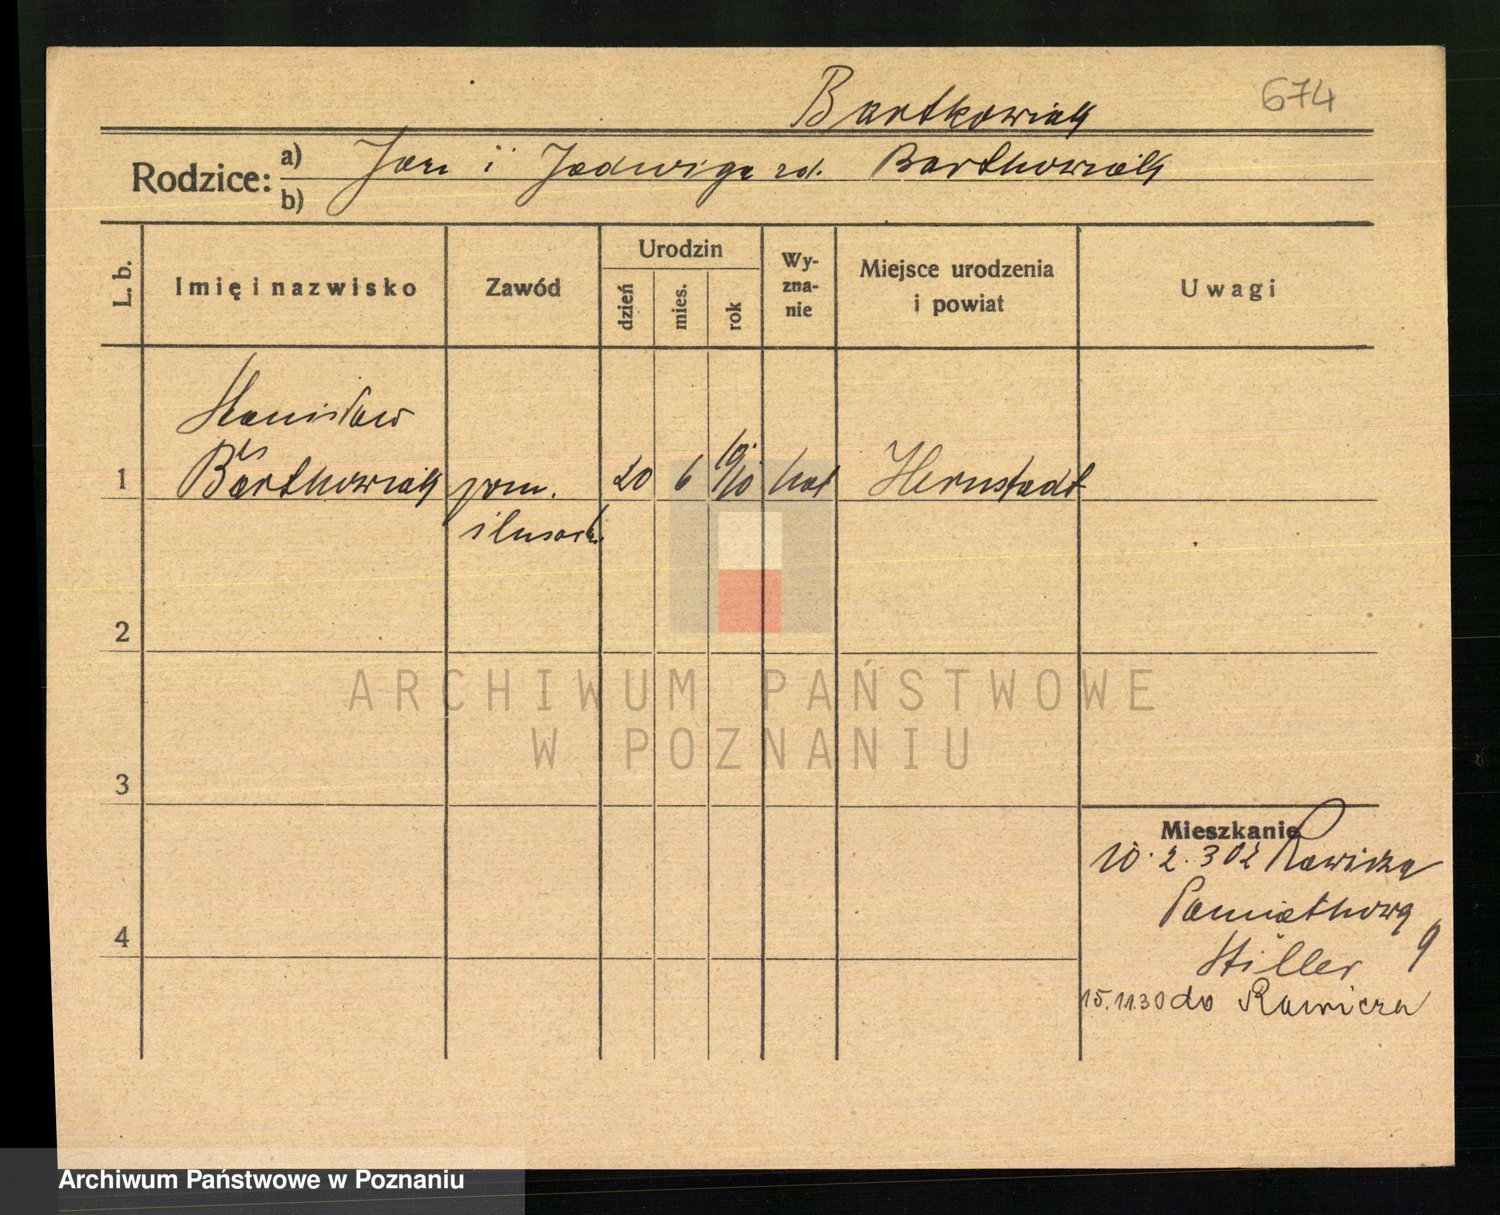 Bartkowiak 674
Rodzice: a) Jan i Jadwiga rd. Bartkowiak
b)
L. b. Imię i nazwisko Zawód Urodzin dzień mies. rok Wy-zna-nie Miejsce urodzenia i powiat Uwagi
Stanisław
1 Bartkowiak pom. 20 6 19 10 kat Hernstadt
ślusark.
2
ARCHIWUM PAŃSTWOWE
W POZNANIU
3
Mieszkanie
10.2.30 z Rawicza
Pamiątkowa
4 9
Hiller
15.11.30 do Rawicza
Archiwum Państwowe w Poznaniu